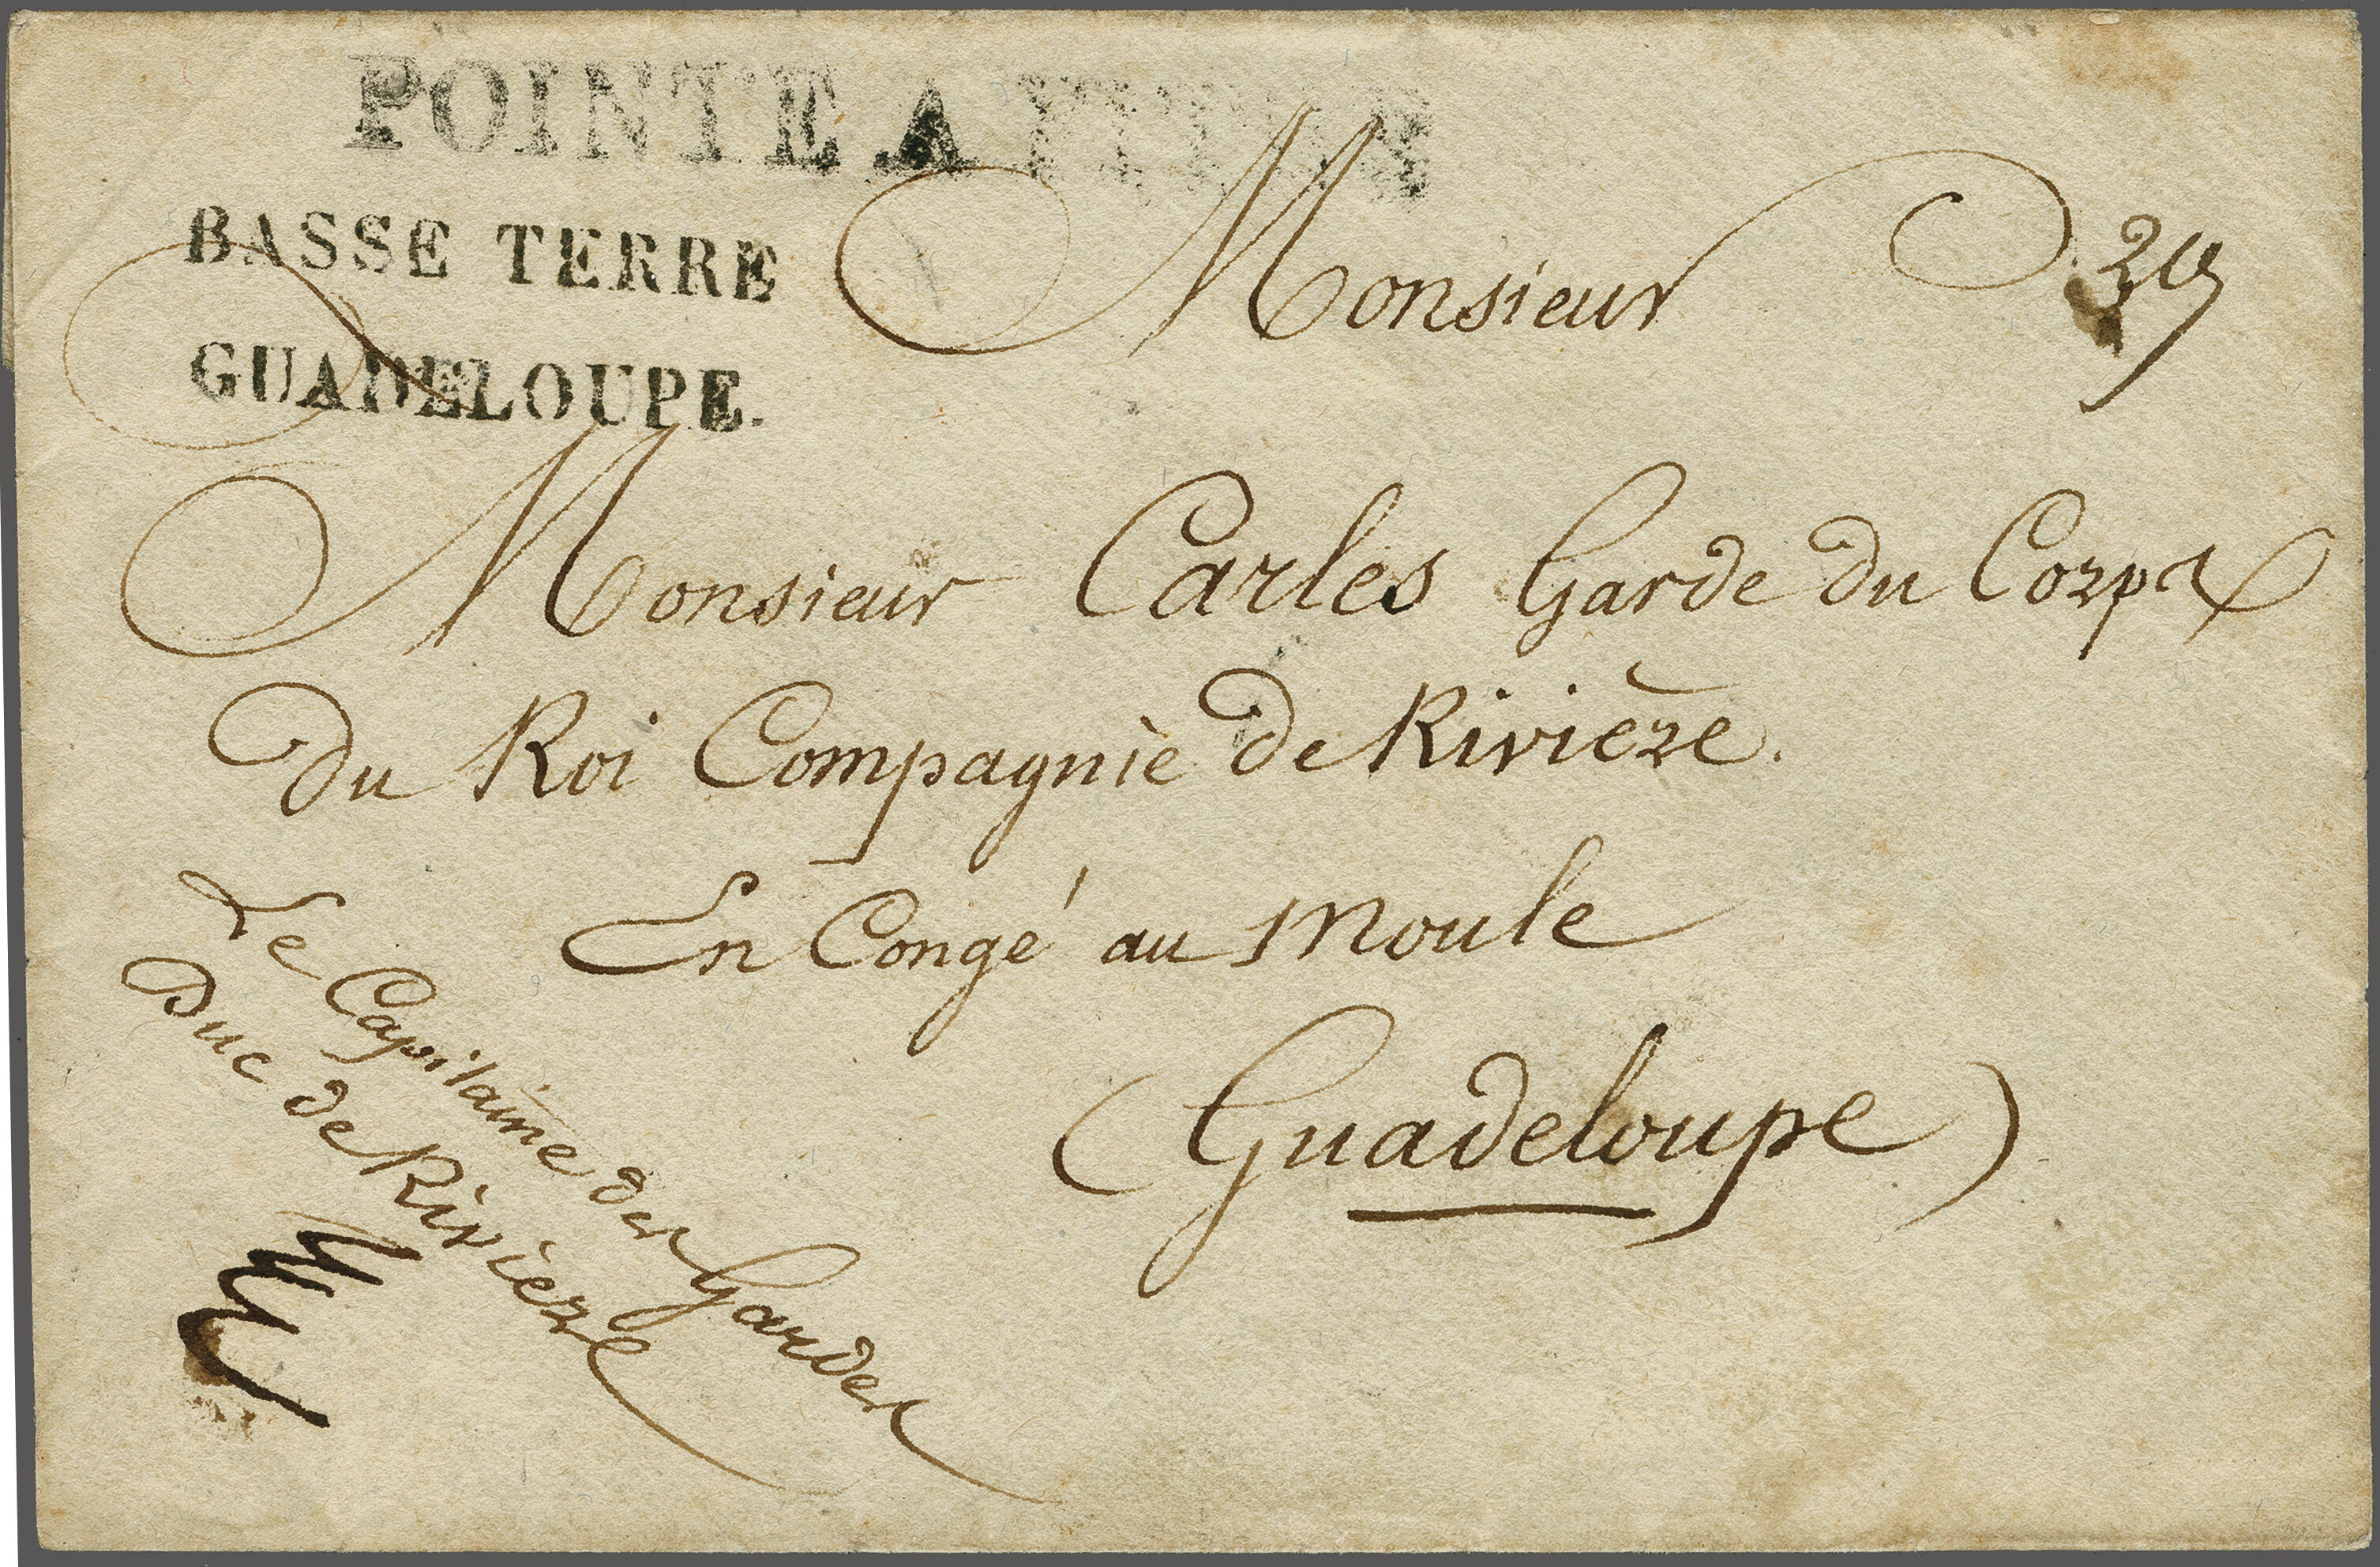 POINTE A PITRE
BASSE TERRE
GUADELOUPE.
Monsieur
Monsieur Carles Garde du Corps
du Roi Compagnie de Rivière.
En Congé au Moule
(Guadeloupe)
Le Capitaine des Gardes
Duc de Rivière